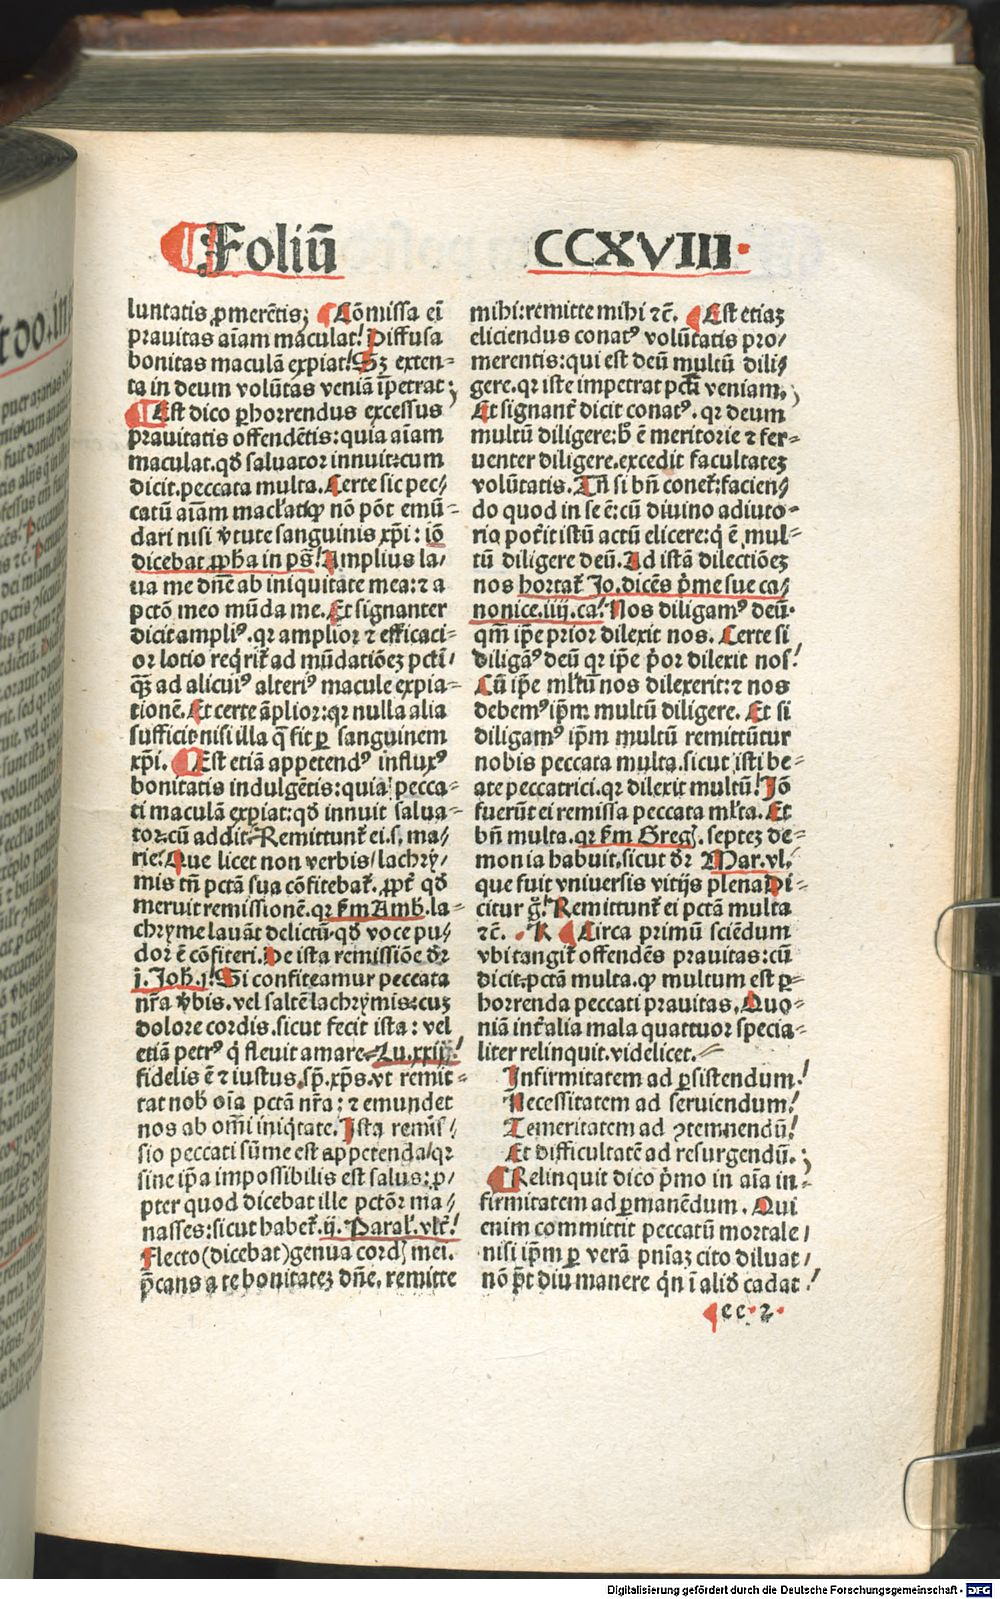 ¶ Foliū CCXVIII.
luntatis ꝓmerētis; ¶ Cōmissa eī
prauitas aīam maculat! Diffusa
bonitas maculā expiat! Sꝫ exten⸗
ta in deum volūtas veniā īpetrat;
¶ Est dico ꝑhorrendus excessus
prauitatis offendētis: quia aīam
maculat. qđ saluator innuit: cum
dicit. peccata multa. Certe sic pec⸗
catū aīam maculat: qꝙ nō pōt emū⸗
dari nisi v̓tute sanguinis xp̄i: iō
dicebat ꝓpha in ps̄! Amplius la/
ua me dn̄e ab iniquitate mea: ⁊ a
pctō meo mūda me. Et signanter
dicit ampliꝰ. qr amplior ⁊ efficaci⸗
or lotio reqrit̄ ad mūdatiōeꝫ pctī/
qꝫ ad alicuiꝰ alteriꝰ macule expia⸗
tionē. Et certe āplior: qr nulla alia
sufficit nisi illa q̄ fit ꝑ sanguinem
xp̄i. ¶ Est etiā appetendꝰ influxꝰ
bonitatis indulgētis: quia pecca⸗
ti maculā expiat: qđ innuit salua⸗
tor: cū addit. Remittunt̄ ei. s. ma⸗
rie. Que licet non verbis/ lachrȳ⸗
mis tn̄ pctā sua cōfitebat̄. ꝓpt̄ qđ
meruit remissionē. qr s̄m Amb̄. la⸗
chryme lauāt delictū. qđ voce pu/
dor ē cōfiteri. De ista remissiōe dr̄
j. Joh̄. j! Si confiteamur peccata
nr̄a v̓bis. vel saltē lachrymis: cuꝫ
dolore cordis. sicut fecit ista: vel
etiā petrꝰ q̄ fleuit amare. Lu. xxij!
fidelis ē ⁊ iustus. sꝫ. xp̄s. vt remit⸗
tat nob̄ oīa pctā nr̄a: ⁊ emundet
nos ab omī iniqtate. Ista remis/
sio peccati sūme est appetenda/ qr
sine ip̄a impossibilis est salus: ꝓ/
pter quod dicebat ille pctōr ma/
nasses: sicut habet̄. ij. Paral̄. vlt̄!
Flecto (dicebat) genua cordꝭ mei.
p̄cans a te bonitateꝫ dn̄e. remitte
mihi: remitte mihi ⁊c̄. ¶ Est etiaꝫ
eliciendus conatꝰ volūtatis pro/
merentis: qui est deū multū dili/
gere. qr iste impetrat pctī veniam.
Et signant̄ dicit conatꝰ. qr deum
multū diligere: h̄ ē meritorie ⁊ fer⸗
uenter diligere. excedit facultateꝫ
volūtatis. Tn̄ si bn̄ conet̄: facien/
do quod in se ē: cū diuino adiuto⸗
rio pot̄it istū actū elicere: q̄ ē mul⸗
tū diligere deū. Ad istā dilectiōeꝫ
nos hortat̄ Jo. dicēs p̄me sue ca/
nonice. iiij. ca! Nos diligamꝰ deū.
qm̄ ip̄e prior dilexit nos. Certe si
diligāꝰ deū qr ip̄e p̄or dilexit nos!
Cū ip̄e ml̄tū nos dilexerit: ⁊ nos
debemꝰ ip̄m multū diligere. Et si
diligamꝰ ip̄m multū remittūtur
nobis peccata multa. sicut isti be⸗
ate peccatrici. qr dilexit multū! Jō
fuerūt ei remissa peccata ml̄ta. Et
bn̄ multa. qr s̄m Gregꝭ. septeꝫ de⸗
monia habuit. sicut dr̄ Mar. vl.
que fuit vniuersis vitijs plena. Di⸗
citur g̊! Remittunt̄ ei pctā multa
⁊c̄. ¶ Circa primū sciēdum
vbi tangit̄ offendēs prauitas: cū
dicit: pctā multa. ꝙ multum est ꝑ⸗
horrenda peccati prauitas. Quo⸗
niā int̄ alia mala quattuor specia⸗
liter relinquit. videlicet.
Infirmitatem ad ꝑsistendum!
Necessitatem ad seruiendum!
Temeritatem ad ꝯtemnendū!
Et difficultatē ad resurgendū.
¶ Relinquit dico p̄mo in aīa in⸗
firmitatem ad ꝑmanēdum. Qui
enim committit peccatū mortale/
nisi ip̄m ꝑ verā pnīaꝫ cito diluat/
nō pōt diu manere qn̄ ī aliđ cadat!
¶ cc. 2.
Digitalisierung gefördert durch die Deutsche Forschungsgemeinschaft - DFG